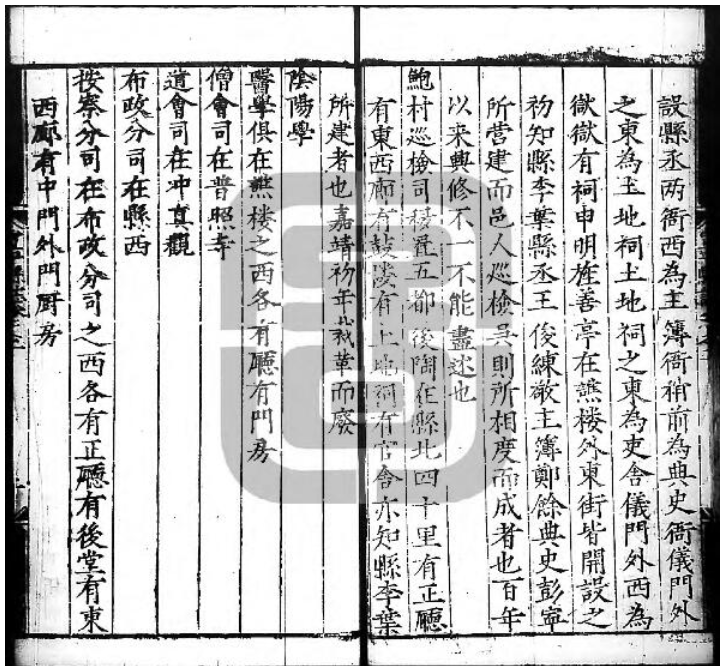 設縣丞两衙西為主簿衙稍前為典史衙儀門外
之東為土地祠土地祠之東為吏舍儀門外西為
獄獄有祠申明旌善亭在譙楼外東街皆開設之
初知縣李葉縣丞王俊練敏主簿鄭餘典史彭寧
所营建而邑人巡檢吳則所相度而成者也百年
以来興修不一不能盡述也
鮑村巡檢司後陶在縣北四十里有正廳
有東西廊有鼓楼有土地祠有官舍亦知縣李葉
所建者也嘉靖初年裁革而廢
陰陽學
醫學俱在譙楼之西各有廳有門房
僧會司在普照寺
道會司在冲真觀
布政分司在縣西
按察分司在布政分司之西各有正廳有後堂有東
西廊有中門外門厨房